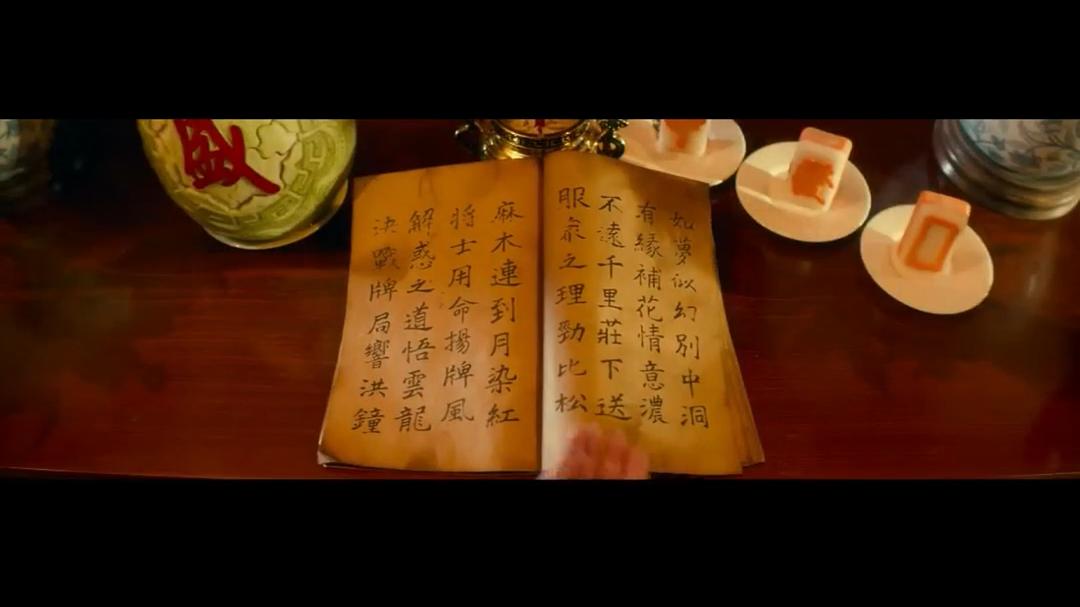 如夢似幻別中洞
有緣補花情意濃
不遠千里莊下送
服氣之理勁比松
麻木連到月染紅
將士用命揚牌風
解惑之道悟雲龍
決戰牌局響洪鐘
盛